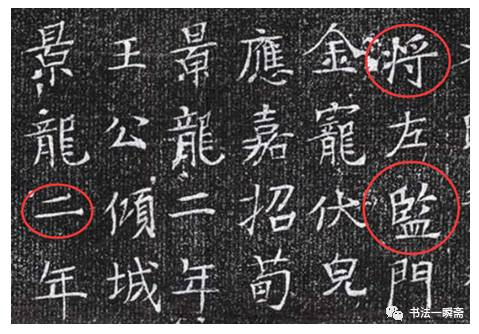 将左監門
金寵伏皃
應嘉招荀
景龍二年
王公傾城
景龍二年
书法一瞬斋